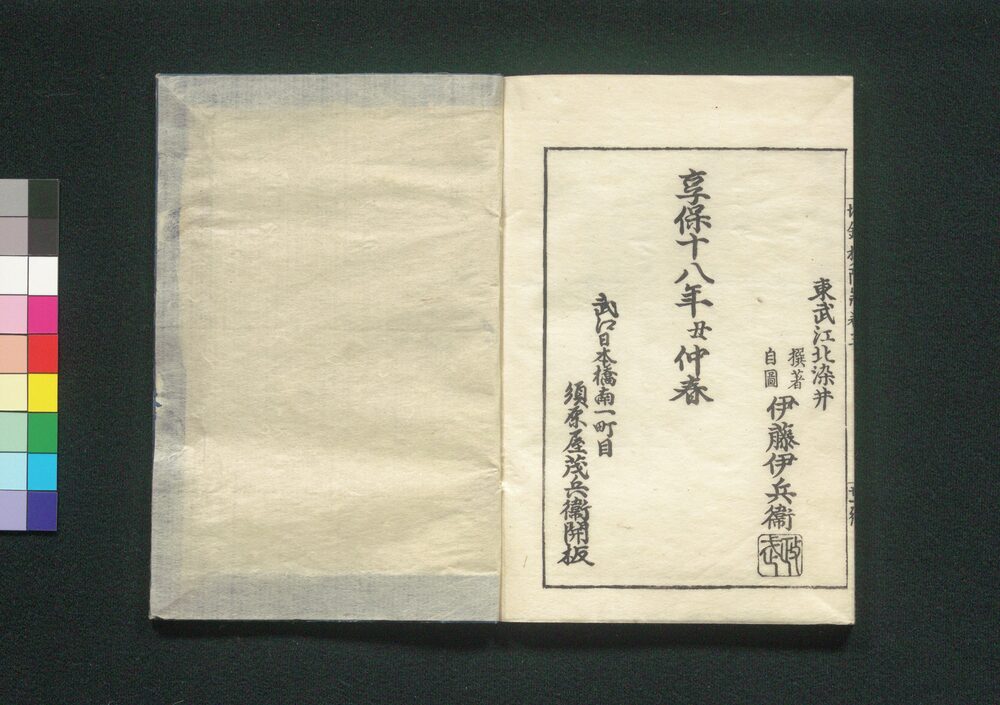 東武江北染井
撰著
自圖
伊藤伊兵衞
政武
享保十八年丑仲春
武江日本橋南一町目
須原屋茂兵衞開板